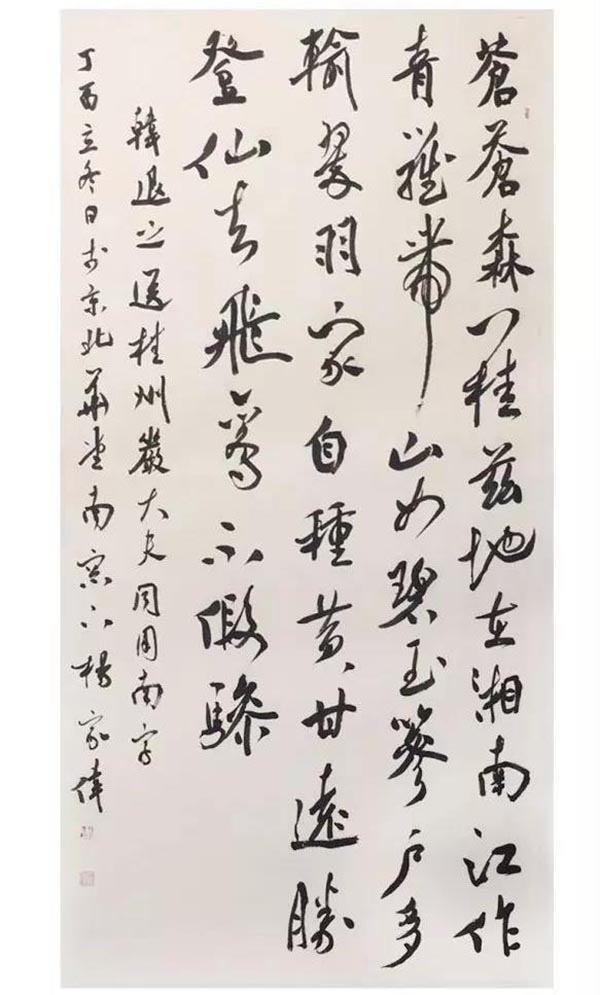 蒼蒼森八桂茲地在湘南江作
青羅帶山如碧玉篸戶多
輸翠羽家自種黃甘遠勝
登仙去飛鸞不假驂
韓退之送桂州嚴大夫同用南字
丁酉立冬日於京北華堂南窗下楊家偉